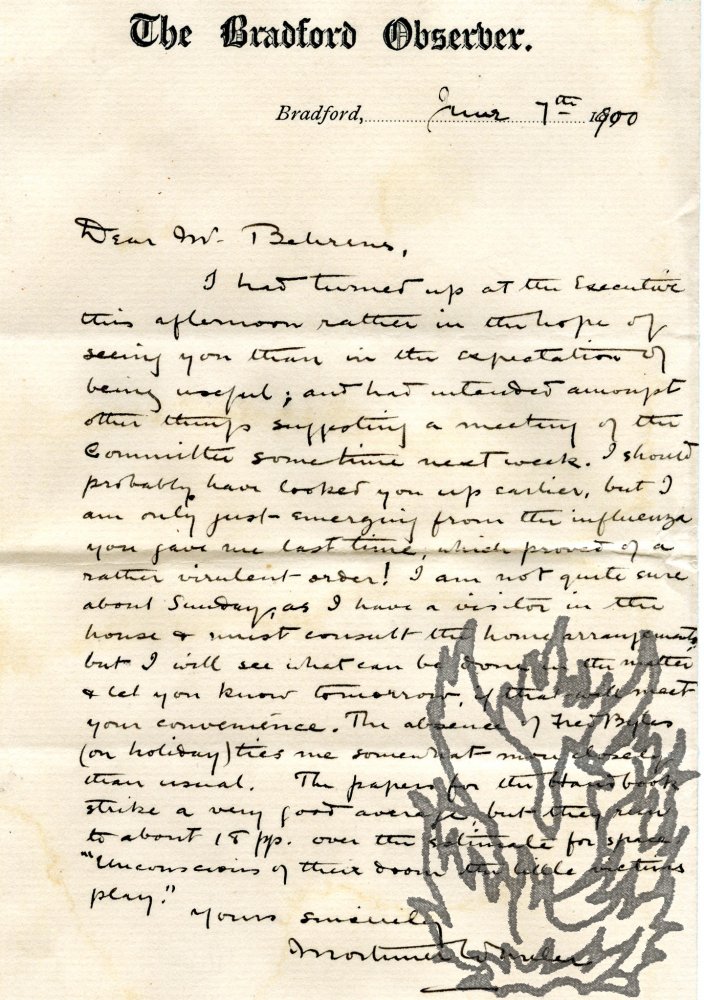 The Bradford Observer.
Bradford, June 7th 1900
Dear Mr. Behrens,
I had turned up at the Executive
this afternoon rather in the hope of
seeing you than in the expectation of
being useful; and had intended amongst
other things suggesting a meeting of the
Committee sometime next week. I should
probably have looked you up earlier, but I
am only just emerging from the influenza
you gave me last time, which proved of a
rather virulent order! I am not quite sure
about Sunday, as I have a visitor in the
house & must consult the home arrangements,
but I will see what can be done in the matter
& let you know tomorrow, if that will meet
your convenience. The absence of Fred Byles
(on holiday) ties me somewhat more closely
than usual. The papers for the Handbook
strike a very good average, but they run
to about 18 pp. over the estimate for space.
"Unconscious of their doom the little victims
play."
Yours sincerely
Mortimer Wheeler